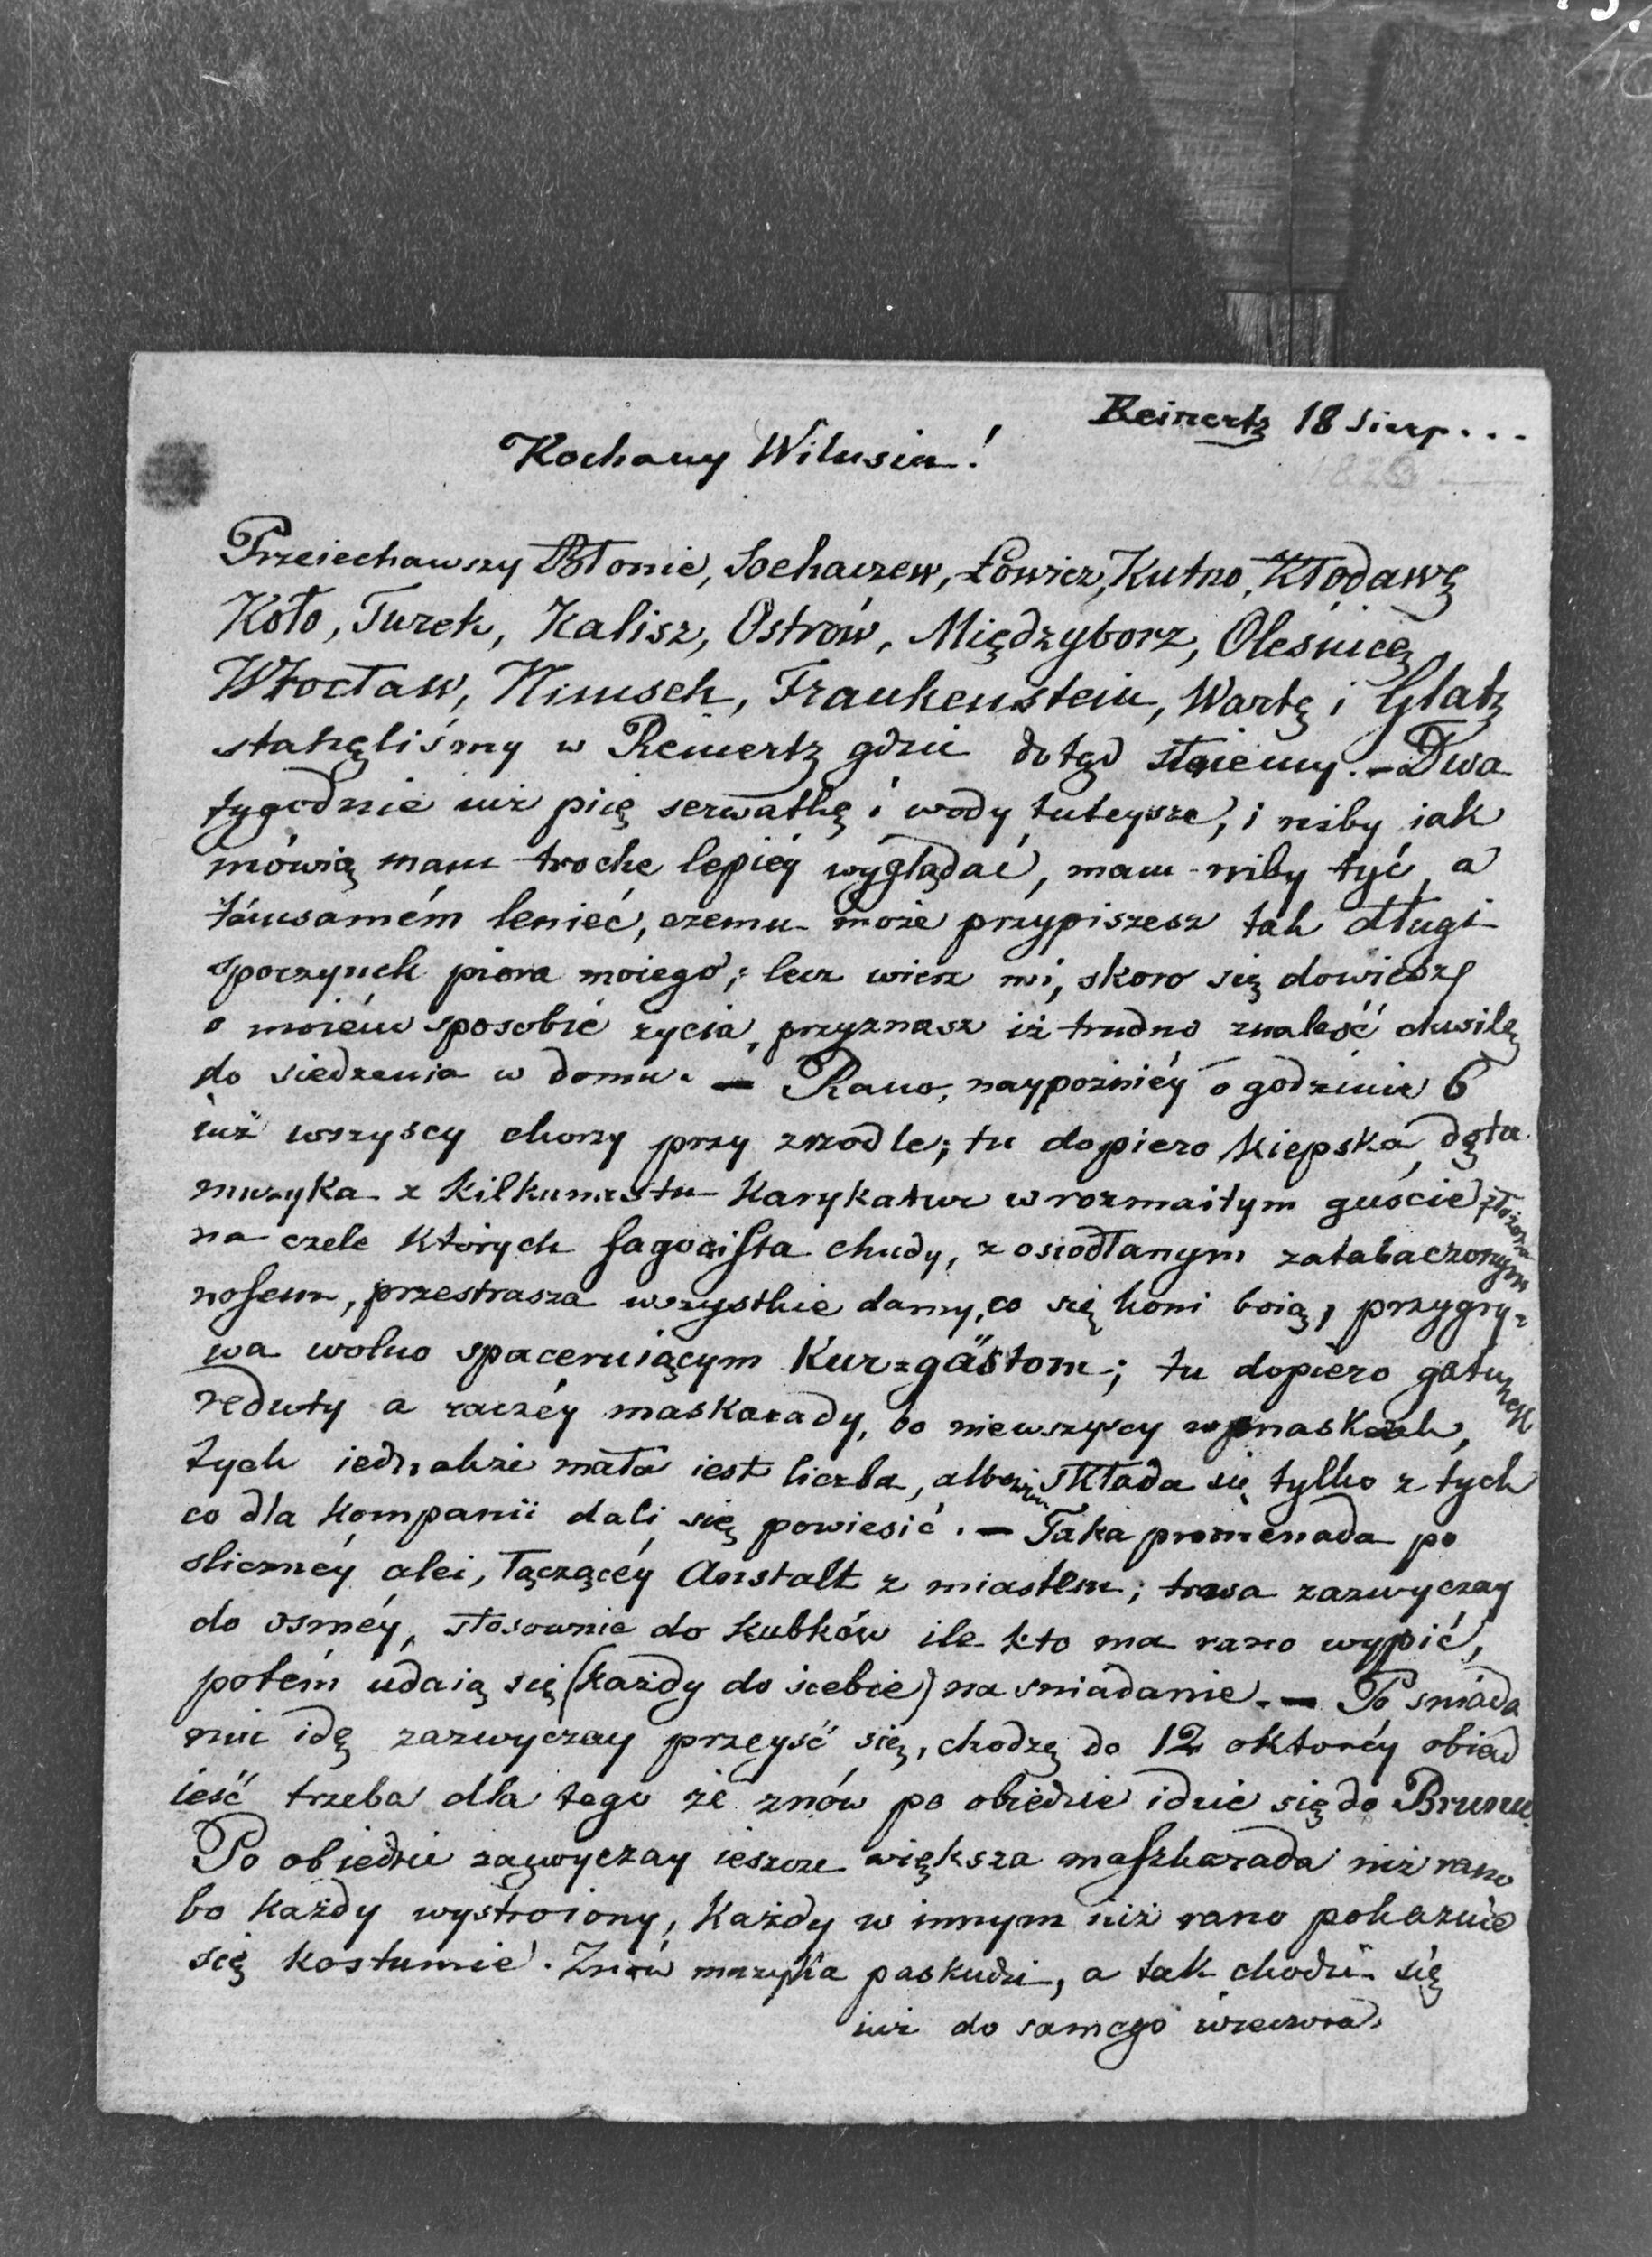 Reinertz 18 Sierp...
1826
Kochany Wilusiu!
Przeiechawszy Błonie, Sochaczew, Łowicz, Kutno, Kłodawę
Koło, Turek, Kalisz, Ostrów, Międzyborz, Olesnicę
Wrocław, Nimsch, Frankenstein, Wartę i Glatz
stanęliśmy w Reinertz gdzie dotąd stoiemy. – Dwa
tygodnie iuż piię serwatkę i wody tuteysze, i niby iak
mówią mam troche lepiéy wyglądać, mam niby tyć, a
támsamém lenieć, czemu może przypiszesz tak długi
spoczynek piora moiego; lecz wierz mi, skoro się dowiesz
o moiém sposobie zycia, przyznasz iż trudno znaleść chwilę
do siedzenia w domu. – Rano, naypoźniéy o godzinie 6
iuż wszyscy chorzy przy zrzodle; tu dopiero kiepska dęta
muzyka z kilkunastu karykatur w rozmaitym guscie złożona
na czele których fagocista chudy, z osiodłanym zatabaczonym
nosem, przestrasza wszystkie damy, co się koni boią, przygry-
wa wolno spaceruiącym Kur=gästom; tu dopiero gatunek
reduty a raczéy maskarady, bo niewszyscy w maskach,
tych iednakże mała iest liczba, albowiem składa się tylko z tych
co dla kompanii dali się powiesić. – Taka promenada po
sliczney alei, łączącéy Anstalt z miastem; trwa zazwyczay
do osméy, stosownie do kubków ile kto ma rano wypić,
potém udaią się (każdy do siebie) na sniadanie. – Po sniada
niu idę zazwyczay przeyść się, chodzę do 12 o któréy obiad
ieść trzeba dla tego że znów po obiedzie idzie się do Brunu.
Po obiedzie zazwyczay ieszcze większa maszkarada niż rano
bo każdy wystroiony, każdy w innym niż rano pokazuie
się kostumie. Znów muzyka paskudzi, a tak chodzi się
iuż do samego wieczora.